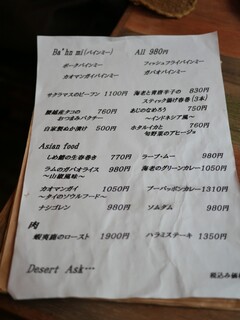 Ba'hn mi(バインミー) All 980円
ポークバインミー フィッシュフライバインミー
カオマンガイバインミー ガパオバインミー
サクラマスのビーフン 1100円
海老と青唐辛子の 830円
スティック揚げ春巻(3本)
タコの 760円
おつまみパクチー
あじのなめろう 750円
～インドネシア風～
自家製ぬか漬け 500円
ホタルイカと 940円
旬野菜のアヒージョ
Asian food
しめ鯖の生春巻き 770円 ラープ・ムー 980円
ラムのガパオライス 980円 海老のグリーンカレー 1050円
カオマンガイ 1050円 プーパッポンカレー 1310円
～タイのソウルフード～
ナシゴレン 980円 ソムタム 980円
肉
蝦夷鹿のロースト 1900円 ハラミステーキ 1350円
Desert Ask…
税込み価